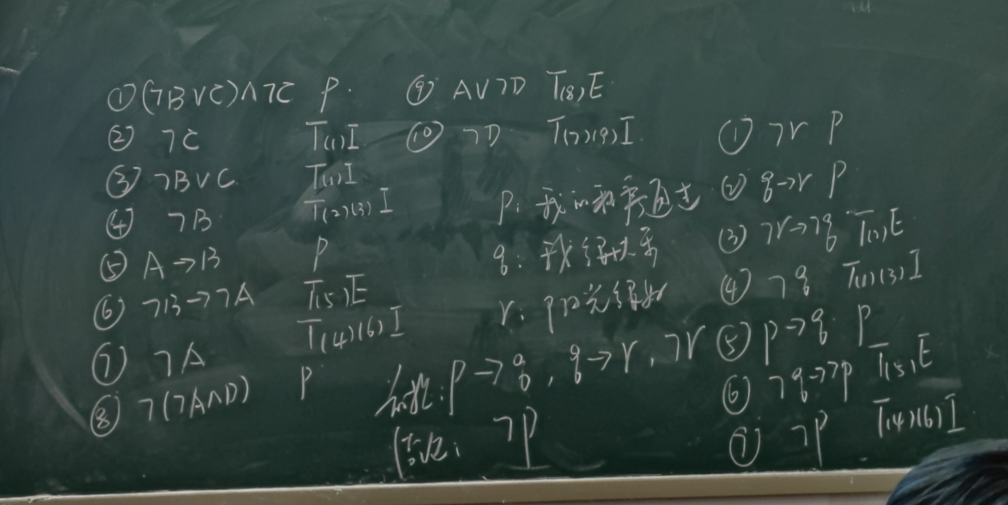 ① (¬B∨C)∧¬C P
② ¬C T(1)I
③ ¬B∨C T(1)I
④ ¬B T(2)(3)I
⑤ A→B P
⑥ ¬B→¬A T(5)E
⑦ ¬A T(4)(6)I
⑧ ¬(¬A∧D) P
⑨ A∨¬D T(8)E
⑩ ¬D T(7)(9)I
p: 我的和弄通过
q: 我很快乐
r: 阳光很好
前提: p→q, q→r, ¬r
结论: ¬p
① ¬r P
② q→r P
③ ¬r→¬q T(2)E
④ ¬q T(1)(3)I
⑤ p→q P
⑥ ¬q→¬p T(5)E
⑦ ¬p T(4)(6)I